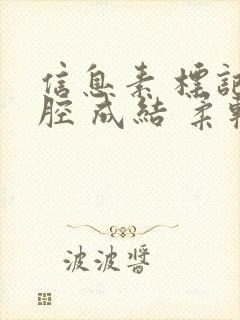 信息素標記
腔成結柔軟
波波醬